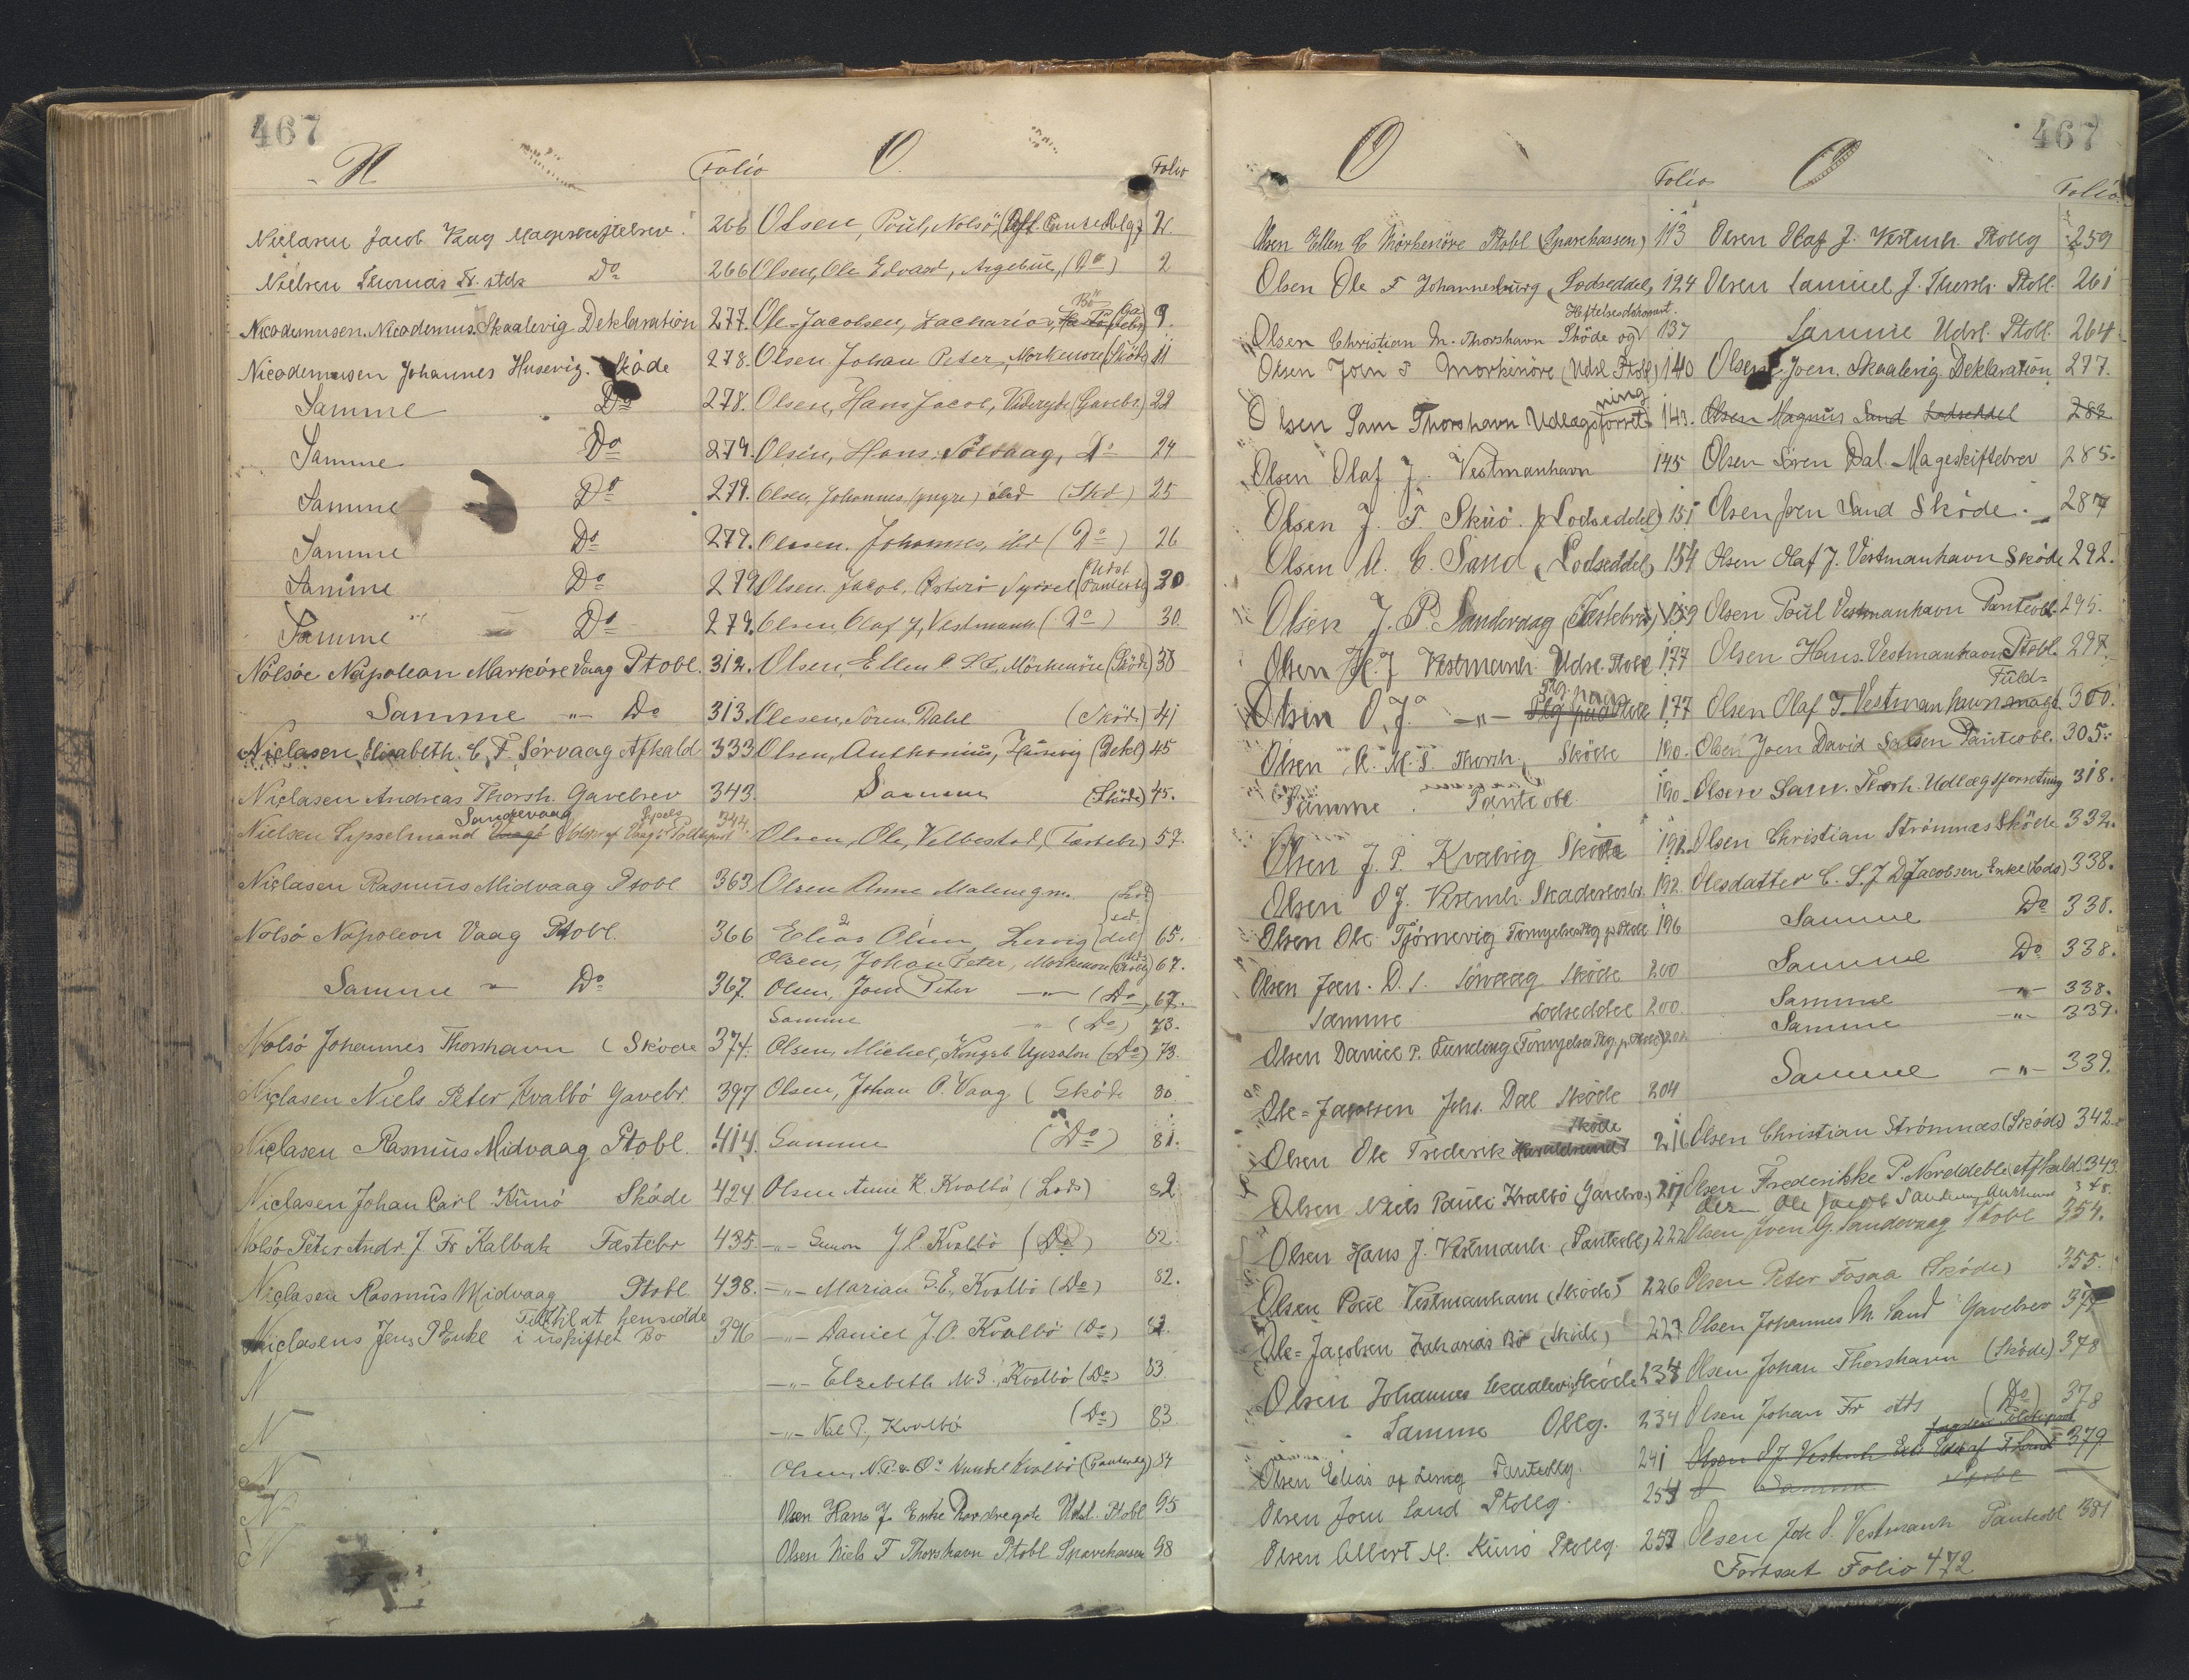 467
N Folio
Niclasen Jacob Vaag Mageskiftebrev 266
Nielsen Thomas Fr. stds Do 266
Nicodemusen Nicodemus Skaalevig Deklaration 277.
Nicodemusen Johannes Husevig. Skøde 278.
Samme Do 278.
Samme Do 279.
Samme Do 279.
Samme Do 279.
Samme Do 279
Samme " Do 279.
Nolsøe Napoleon Markøre Vaag Ptobl. 312.
Samme " Do 313.
Niclasen Elisabeth. C. F. Sørvaag Afkald 333
Niclasen Andreas Thorsh. Gavebrev 343.
Sandevaag
Nielsen Sysselmand Vaagø 344.
Niclasen Rasmus Midvaag Ptobl 363
Nolsø Napoleon Vaag Ptobl. 366
Samme " Do 367.
Nolsø Johannes Thorshavn (Skøde 374.
Niclasen Niels Peter Kvalbø Gavebr. 397
Niclasen Rasmus Midvaag Ptobl. 414.
Niclasen Johan Carl Kunø Skøde 424
Nolsø Peter Andr. J. Fr Kalbak Fæstebr 435.
Niclasen Rasmus Midvaag Ptobl 438.
Till til at hensidde
Niclasens Jens P Enke i uskiftet Bo 396
N
N
N
N
N
O. Folio
Olsen, Poul, Nolsö, 2
Olsen, Ole Edvard, Argebue, (Do) 2
Ole-Jacobsen, Zacharias, 9.
Olsen Johan Peter, Morkenøre (Skøde) 11
Olsen, Hans Jacob, Videreje (Gavebr.) 22
Olsen, Hans Do 24
Olsen, Johannes (yngre) ibd (Skd) 25
Olesen. Johannes, ibd (Do) 26
Udsl
Olsen. Jacob, Østerø Syssel (Panteobl) 30
Olsen Olaf J, Vestmanh (Do) 30.
Olsen, Ellen C. Mörkenöre (Sköde) 38
Olesen, Sören, Dahl (Sköde) 41
Olsen, Anthonius, Husevig (Dekl) 45
Samme (Sköde) 45.
Olsen, Ole, Velbestad, (Fæstebr) 57.
Olsen Anne Malene gm. (Lod
sed
Elias Olsen, Lervig del) 65.
Olsen, Johan Peter, Morkenøre (Skøde) 67.
Olsen, Joen Peter " (Do) 67.
Samme " (Do) 73.
Olsen, Michel, Kongsb. (Do) 73.
Olsen, Johan O. Vaag (Sköde 80.
Samme (Do) 81.
Olsen Anne K. Kvalbø (Lods) 82
" Simon J C. Kvalbø (Do) 82.
" Marian S. E., Kvalbø (Do) 82.
" Daniel J. O. Kvalbø (Do) 83.
" Elsebeth M S., Kvalbø (Do) 83.
" Nil P., Kvalbø (Do) 83.
Olsen, N. P. Kvalbø (Panteobl) 84
Olsen Hans J. Enke Nordregøte Udsl. Ptobl 95
Olsen Niels F Thorshavn Ptobl Sparekassen 98
467
O Folio
Olsen Ellen C Mørkenøre Ptobl (Sparekassen) 113
Olsen Ole F Johannesburg (Lodseddel) 124
Heftelsesdokument.
Olsen Christian M. Thorshavn Sköde og 137
Olsen Joen P Morkenøre (Udsl Ptobl) 140
ning
Olsen Sam Thorshavn Udlægsforret 143.
Olsen Olaf J. Vestmanhavn 145
Olsen J. F. Skuö. (Lodseddel) 151
Olsen A. C. Sand (Lodseddel) 154
Olsen J. P. Sandevaag (Fæstebrev) 159
Olsen H. J Vestmanh. Udsl. Ptobl 177
Olsen O. J. " 177
Olsen A. M. S. Thorsh. Sköde 190.
Samme Panteobl. 190.
Olsen J. P. Kvalvig Sköde 192.
Olsen O J. Vestmh. Skadesløsbr. 192.
Olsen Ole Tjörnevig 196
Olsen Joen. D. J. Sörvaag Sköde 200
Samme Lodseddel 200.
Olsen Daniel P. Funding 202.
Ole-Jacobsen Johs. Dal Sköde 204
Sköde
Olsen Ole Frederik 216
Olsen Niels Pauli Kvalbö (Gavebr.) 217
Olsen Hans J. Vestmanh. (Panteobl) 222
Olsen Poul Vestmanhavn (Sköde) 226
Ole-Jacobsen Zakarias Bö (Sköde) 227
Olsen Johannes Skaalevig Sköde 234
Samme Oblg. 234
Olsen Elias af Lervig Panteoblg. 241
Olsen Joen Sand Ptoblg. 254
Olsen Albert M. Kunö Ptoblg. 257
O Folio
Olsen Olaf J. Vestmh. Ptoblg 259
Olsen Samuel J. Thorsh. Ptobl. 261
Samme Udsl. Ptobl. 264
Olsen Joen. Skaalevig Deklaration 277.
Olsen Magnus Sand Lodseddel 283
Olsen Sören Dal. Mageskiftebrev 285.
Olsen Joen Sand Sköde. 287
Olsen Olaf J. Vestmanhavn Sköde 292.
Olsen Poul Vestmanhavn Panteobl. 295.
Olsen Hans. Vestmanhavn Ptobl. 297.
Fuld-
Olsen Olaf J. Vestmanhavn magt 300.
Olsen Joen David Salsen Panteobl. 305.
Olsen Sam. Thorh. Udlægsforretning 318.
Olsen Christian Strömnæs Sköde 332.
Olesdatter C. S. J. D Jacobsen Enke (Lods) 338.
Samme Do 338.
Samme Do 338.
Samme " 338.
Samme " 339.
Samme " 339.
Olsen Christian Strømnæs (Skøde) 342.
Olsen Frederikke P. Norddeble (Afkald) 343.
Ole Jacob 348.
Olsen Joen G. Sandevaag Ptobl 354.
Olsen Peter Fosaa (Skøde) 355.
Olsen Johannes M. Sand Gavebrev 377
Olsen Johan Thorshavn (Skøde) 378
Olsen Johan Fr stds (Do) 378
Olsen O J Vestmh 379
Samme Ptobl
Olsen Joh S. Vestmanh Panteobl 381
Fortsat Folio 472